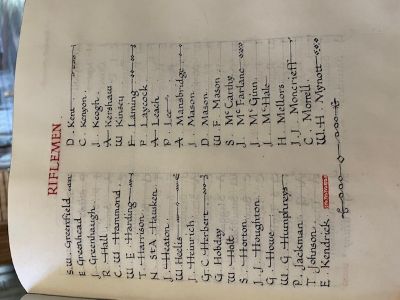 RIFLEMEN
S.W. Greenfield
E Greenhead
J. Greenhaugh
R. Hall
C. W Hammond
W. E. Harding
T. Harrison
N StA Hawken
J. Heaton
W Heelis
J. Heinrich
G C Herbert
G Hobday
W Holt
S. Horton
J. J Houghton
G Howe
W. G Humphreys
P. Jackman
T Johnson
E. Kendrick
D. Kent
C. Kenyon
J. Keogh
A Kershaw
W Kinsey
F. Laming
P. Laycock
A Leach
P. Lee
A Mansbridge
J. Mason
D. Mason
W. F. Mason
S McCarthy
J. McFarlane
J. McGinn
J McHale
H. Mellors
J.J. Moncrieff
C. Morrell
W.H. Mynott